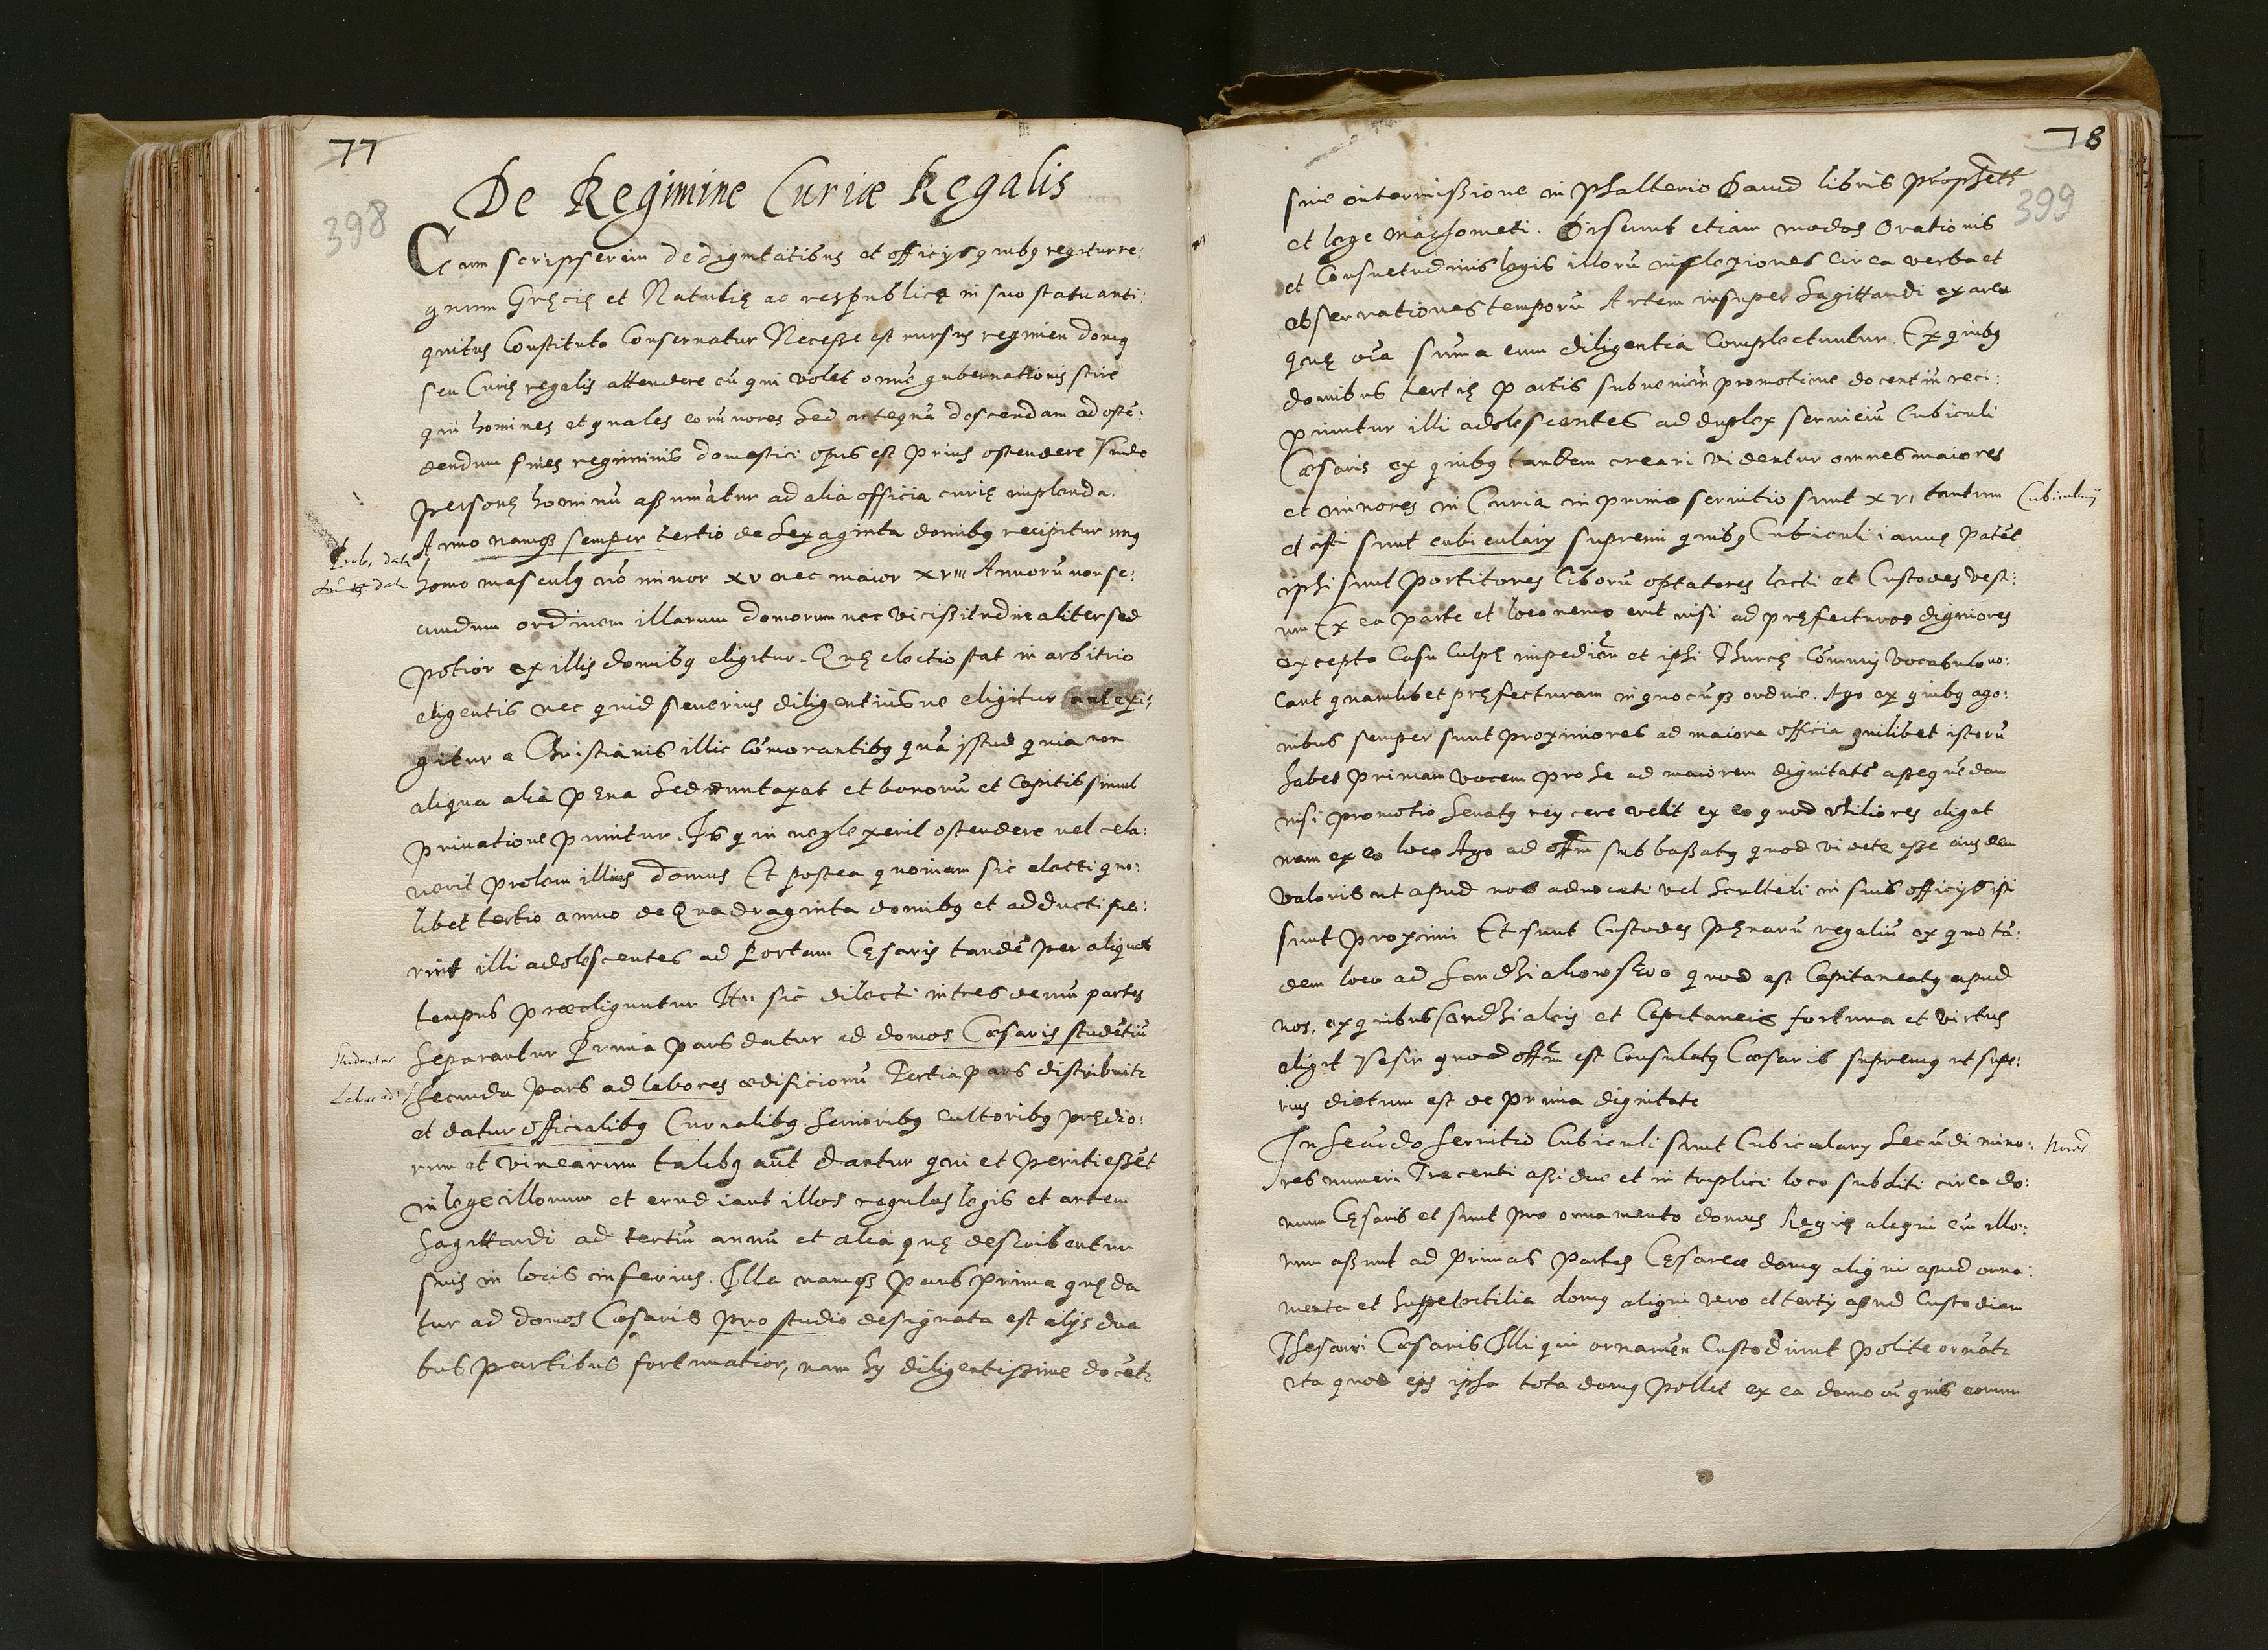 77
398
De Regimine Curiæ Regalis
Cum scripserim de dignitatibus et officijs quibus regitur re:
gnum Gręcię et Natulię ac respublicę in suo statu anti:
quitus Constituto Conservatur Necesse est rursus regimen domus
seu Curię regalis attendere cū qui volet onus gubernationis scire
qui homines et quales eorū mores Sed antequā descendam ad ostē:
dendum fines regiminis domestici opus est prius ostendere Vnde
personę hominū assumātur ad alia officia curię implenda.
Anno namque semper tertio de Sexaginta domibus recipitur unus
homo masculus nō minor xv nec maior xviii Annorū non se:
cundum ordinem illarum domorum nec vicissitudine aliter sed
potior ex illis domibus eligitur. Quę electio stat in arbitrio
eligentis nec quid severius diligentiusve eligitur aut exi:
gitur a Christianis illic cōmorantibus quā istud quia non
aliqua alia pęna Sed duntaxat et bonorū et Capitis simul
privatione punitur. Is qui neglexerit ostendere vel cela:
verit prolem illius domus Et postea quoniam sic electi quo:
libet tertio anno de Quadraginta domibus et adducti fue:
rint illi adolescentes ad Portam Cęsaris tandē per aliquot
tempus præeliguntur Itē sic dilecti in tres demū partes
Studentes
separantur Prima pars datur ad domos Cæsaris studētiū
Secunda pars ad labores ædificiorū Tertia pars distribuitur
et datur officialibus Curialibus Senioribus Cultoribus prędio:
rum et vinearum talibus autem dantur qui et periti essēt
in lege illorum et erudiant illos regulas legis et artem
Sagittandi ad tertiū annū et alia quę describentur
suis in locis inferius. Illa namque pars prima quę da
tur ad domos Cæsaris pro studio designata est alijs dua
bus partibus fortunatior, nam hy diligentissime docētur
78
399
sine intermissione in Psalterio Dauid libris prophet
et lege Machometi. Discunt etiam modos Orationis
et Consuetudinis legis illorū inflexiones circa verba et
observationes temporū Artem insuper Sagittandi ex arcu
quę oīa summa cum diligentia Complectuntur. Ex quibus
domibus tertię partis subveniūt promotione docentiū reci:
piuntur illi adolescentes ad duplex servitiū Cubiculi
Cæsaris ex quibus tandem creari videntur omnes maiores
et minores in Curia in primo servitio sunt xvi tantum
et isti sunt cubicularij supremi quibus Cubiculi ianuę patēt
ipsi sunt portitores Ciborū optatores lecti et Custodes vesti:
um Ex ea parte et loco nemo erit nisi ad pręfecturas digniores
excepto Casu Culpę impediētur et ipsi Thurcę Cōmuni Vocabulo vo:
cant quamlibet pręfecturam in quocūque ordine. Ago ex quibus ago:
nibus semper sunt proximiores ad maiora officia quilibet istorū
habet primam vocem pro se ad maiorem dignitatē assequēdam
nisi promotio Senatus reycere velit ex eo quod vtiliores eligat
nam ex eo loco Ago ad offm subbassatus quod videtur esse eiusdem
valoris ut apud nos advocati vel Sculteti in suis officijs isti
sunt proximi Et sunt Custodes pęnarū regaliū ex quo tā:
dem loco ad Sandziakowstwo quod est Capitaneatus apud
nos, ex quibus Sandziakis et Capitaneis fortuna et virtus
eligit Vesir quod offm est Consulatus Cæsaris supremus ut supe:
rius dictum est de prima dignitate
In Secūdo Servitio Cubiculi sunt Cubicularij Secūdi mino:
res numeri Trecenti assidue et in triplici loco subditi circa do:
mum Cęsaris et sunt pro ornamento domus Regię aliqui eni illo:
rum assunt ad primas partes Cęsareæ domus aliqui apud orna:
menta et suppelectilia domus aliqui vero et tertij apud Custodiam
Thesauri Cæsaris Illi qui ornamen Custodiunt polite ornātur
ita quod eis ipsa tota domus pollet ex ea domo cū quis eorum